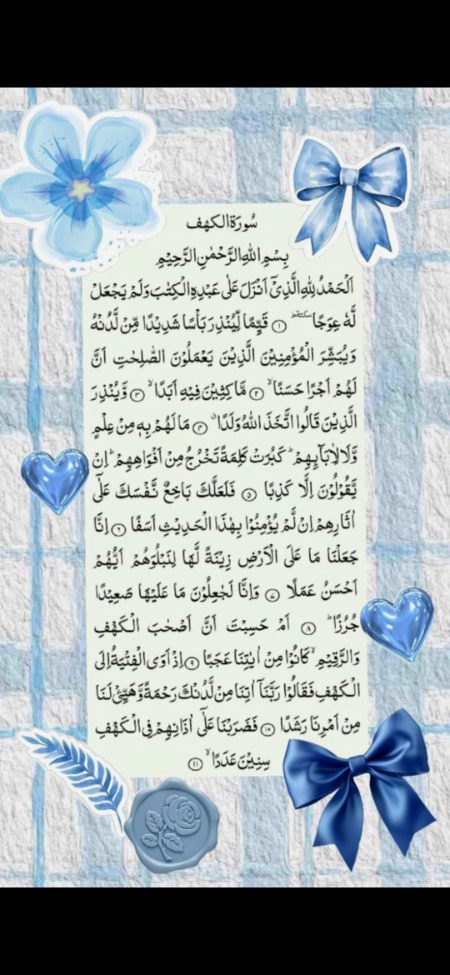 سُورَةُ الكهف
بِسْمِ اللهِ الرَّحْمٰنِ الرَّحِيْمِ
اَلْحَمْدُ لِلّٰهِ الَّذِيْٓ اَنْزَلَ عَلٰى عَبْدِهِ الْكِتٰبَ وَلَمْ يَجْعَلْ
لَّهٗ عِوَجًا ۜ سكتة ﴿۱﴾ قَيِّمًا لِّيُنْذِرَ بَاْسًا شَدِيْدًا مِّنْ لَّدُنْهُ
وَيُبَشِّرَ الْمُؤْمِنِيْنَ الَّذِيْنَ يَعْمَلُوْنَ الصّٰلِحٰتِ اَنَّ
لَهُمْ اَجْرًا حَسَنًا ۙ ﴿۲﴾ مَّاكِثِيْنَ فِيْهِ اَبَدًا ۙ ﴿۳﴾ وَّيُنْذِرَ
الَّذِيْنَ قَالُوا اتَّخَذَ اللهُ وَلَدًا ۗ ﴿۴﴾ مَا لَهُمْ بِهٖ مِنْ عِلْمٍ
وَّلَا لِاٰبَآىِٕهِمْ ۗ كَبُرَتْ كَلِمَةً تَخْرُجُ مِنْ اَفْوَاهِهِمْ ۗ اِنْ
يَّقُوْلُوْنَ اِلَّا كَذِبًا ﴿۵﴾ فَلَعَلَّكَ بَاخِعٌ نَّفْسَكَ عَلٰٓى
اٰثَارِهِمْ اِنْ لَّمْ يُؤْمِنُوْا بِهٰذَا الْحَدِيْثِ اَسَفًا ﴿۶﴾ اِنَّا
جَعَلْنَا مَا عَلَى الْاَرْضِ زِيْنَةً لَّهَا لِنَبْلُوَهُمْ اَيُّهُمْ
اَحْسَنُ عَمَلًا ﴿۷﴾ وَاِنَّا لَجٰعِلُوْنَ مَا عَلَيْهَا صَعِيْدًا
جُرُزًا ۗ ﴿۸﴾ اَمْ حَسِبْتَ اَنَّ اَصْحٰبَ الْكَهْفِ
وَالرَّقِيْمِ ۙ كَانُوْا مِنْ اٰيٰتِنَا عَجَبًا ﴿۹﴾ اِذْ اَوَى الْفِتْيَةُ اِلَى
الْكَهْفِ فَقَالُوْا رَبَّنَآ اٰتِنَا مِنْ لَّدُنْكَ رَحْمَةً وَّهَيِّئْ لَنَا
مِنْ اَمْرِنَا رَشَدًا ﴿۱۰﴾ فَضَرَبْنَا عَلٰٓى اٰذَانِهِمْ فِى الْكَهْفِ
سِنِيْنَ عَدَدًا ۙ ﴿۱۱﴾